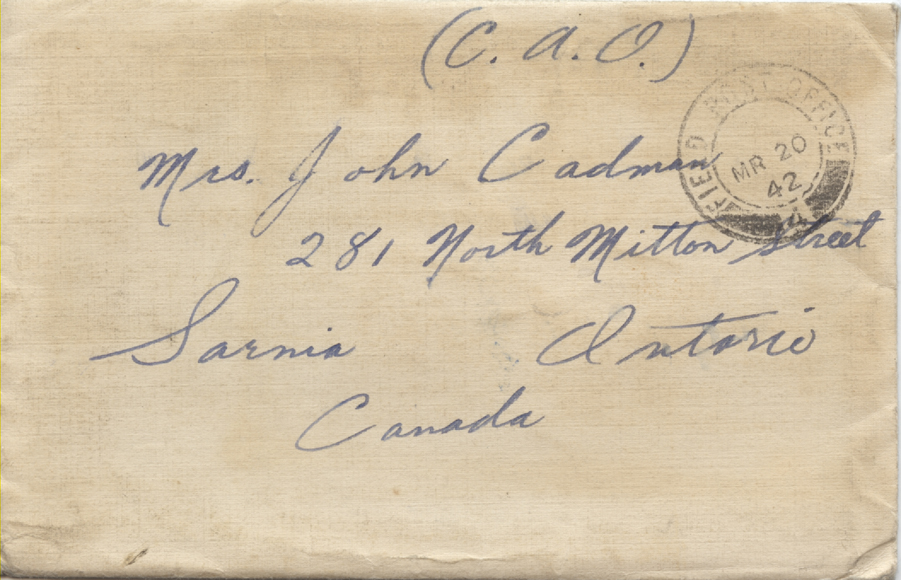 (C. A. O.)
FIELD POST OFFICE
MR 20
42
Mrs. John Cadman
281 North Mitton Street
Sarnia Ontario
Canada